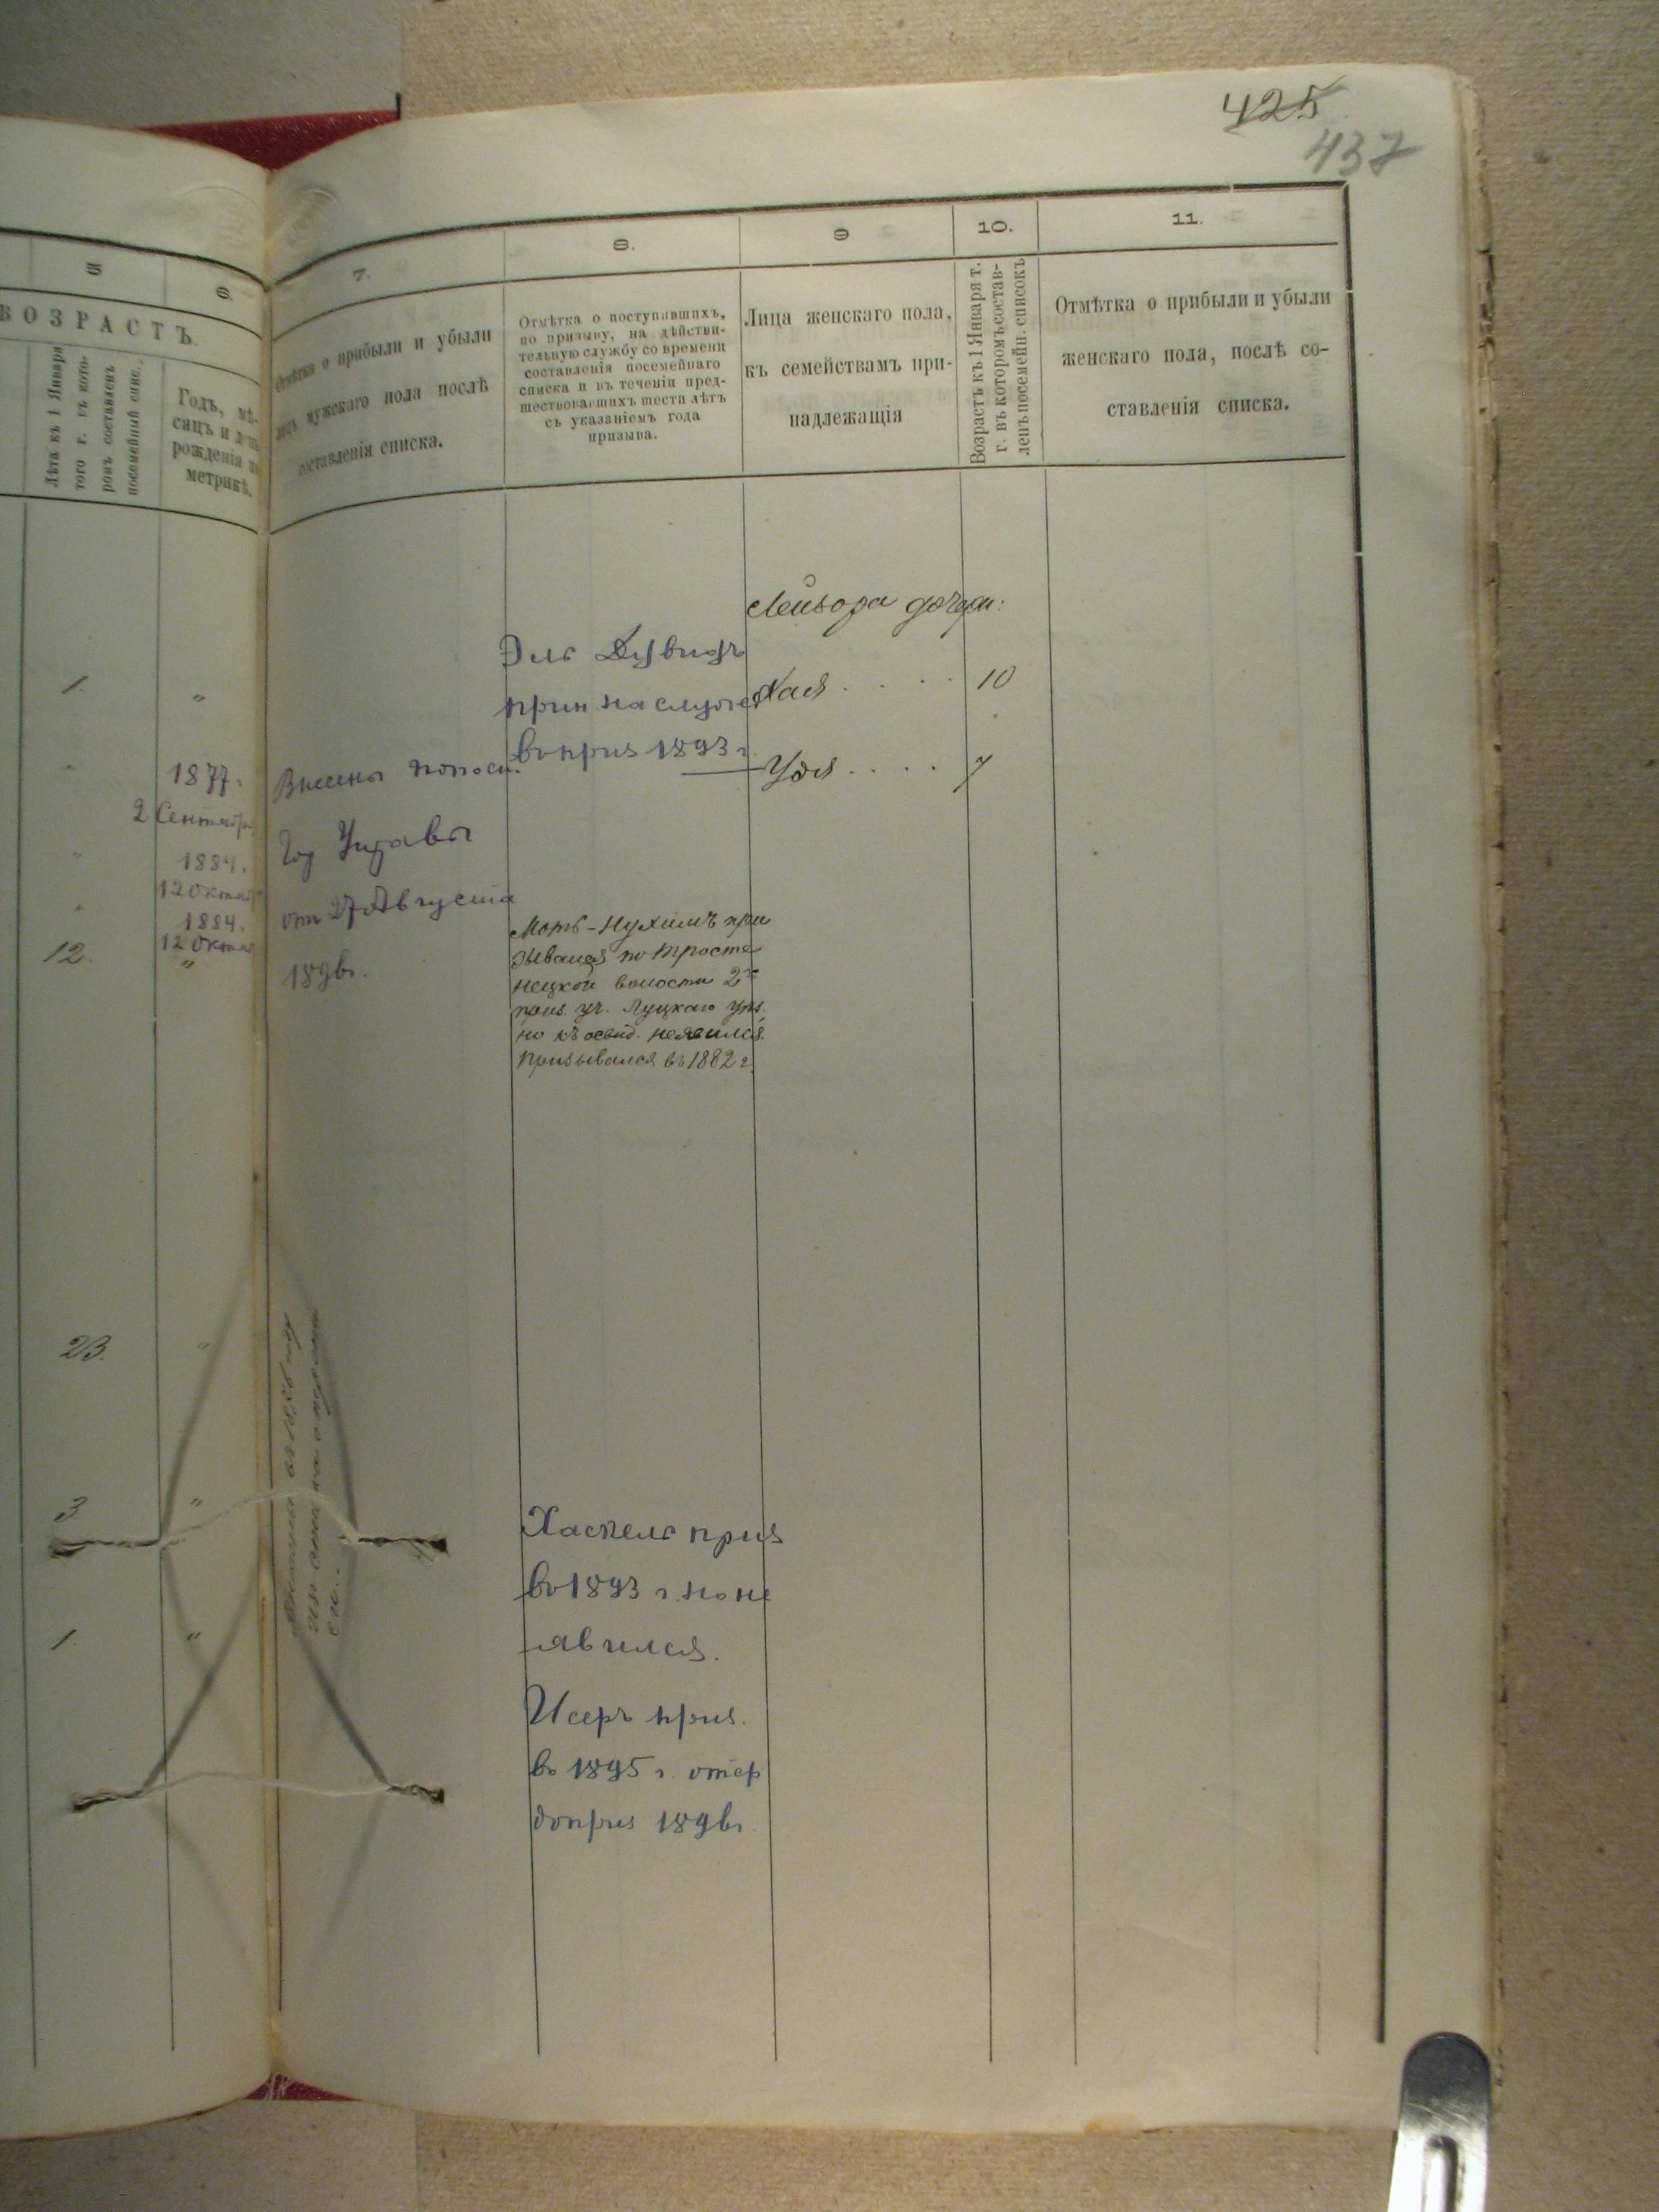 425
437
5
6.
7.
8.
9
10.
11.
ВОЗРАСТЪ.
Лѣта къ 1 Января
того г. въ кото-
ромъ составленъ
посемейный спис.
Годъ, мѣ-
сяцъ и день
рожденія по
метрикѣ.
Отмѣтка о прибыли и убыли
лицъ мужскаго пола послѣ
составленія списка.
Отмѣтка о поступившихъ,
по призыву, на дѣйстви-
тельную службу со времени
составленія посемейнаго
списка и въ теченіи пред-
шествовавшихъ шести лѣтъ
съ указаніемъ года
призыва.
Лица женскаго пола,
къ семействамъ при-
надлежащія
Возрастъ къ 1 Января т.
г. въ которомъ состав-
ленъ посемейн. списокъ
Отмѣтка о прибыли и убыли
женскаго пола, послѣ со-
ставленія списка.
1. "
1877.
2 Сентября
1884.
12 Октяб
1884.
12 Октяб
12. "
23. "
3 "
1. "
Внесены
Управы
отъ 27 Августа
189вг.
Эль
прин на служ
въ приз 1893 г.
Моть-Нухимъ при
зывался по Тросте
нецкой волости 2го
приз. уч. Луцкаго уѣз.
но къ освид. неявился.
Призывался въ 1882 г.
Хаскель приз
въ 1893 г. но не
явился.
Исеръ приз.
въ 1895 г. отср
до приз 189вг
Лейзора дочери:
Хая . . . . 10
Удя . . . . 7